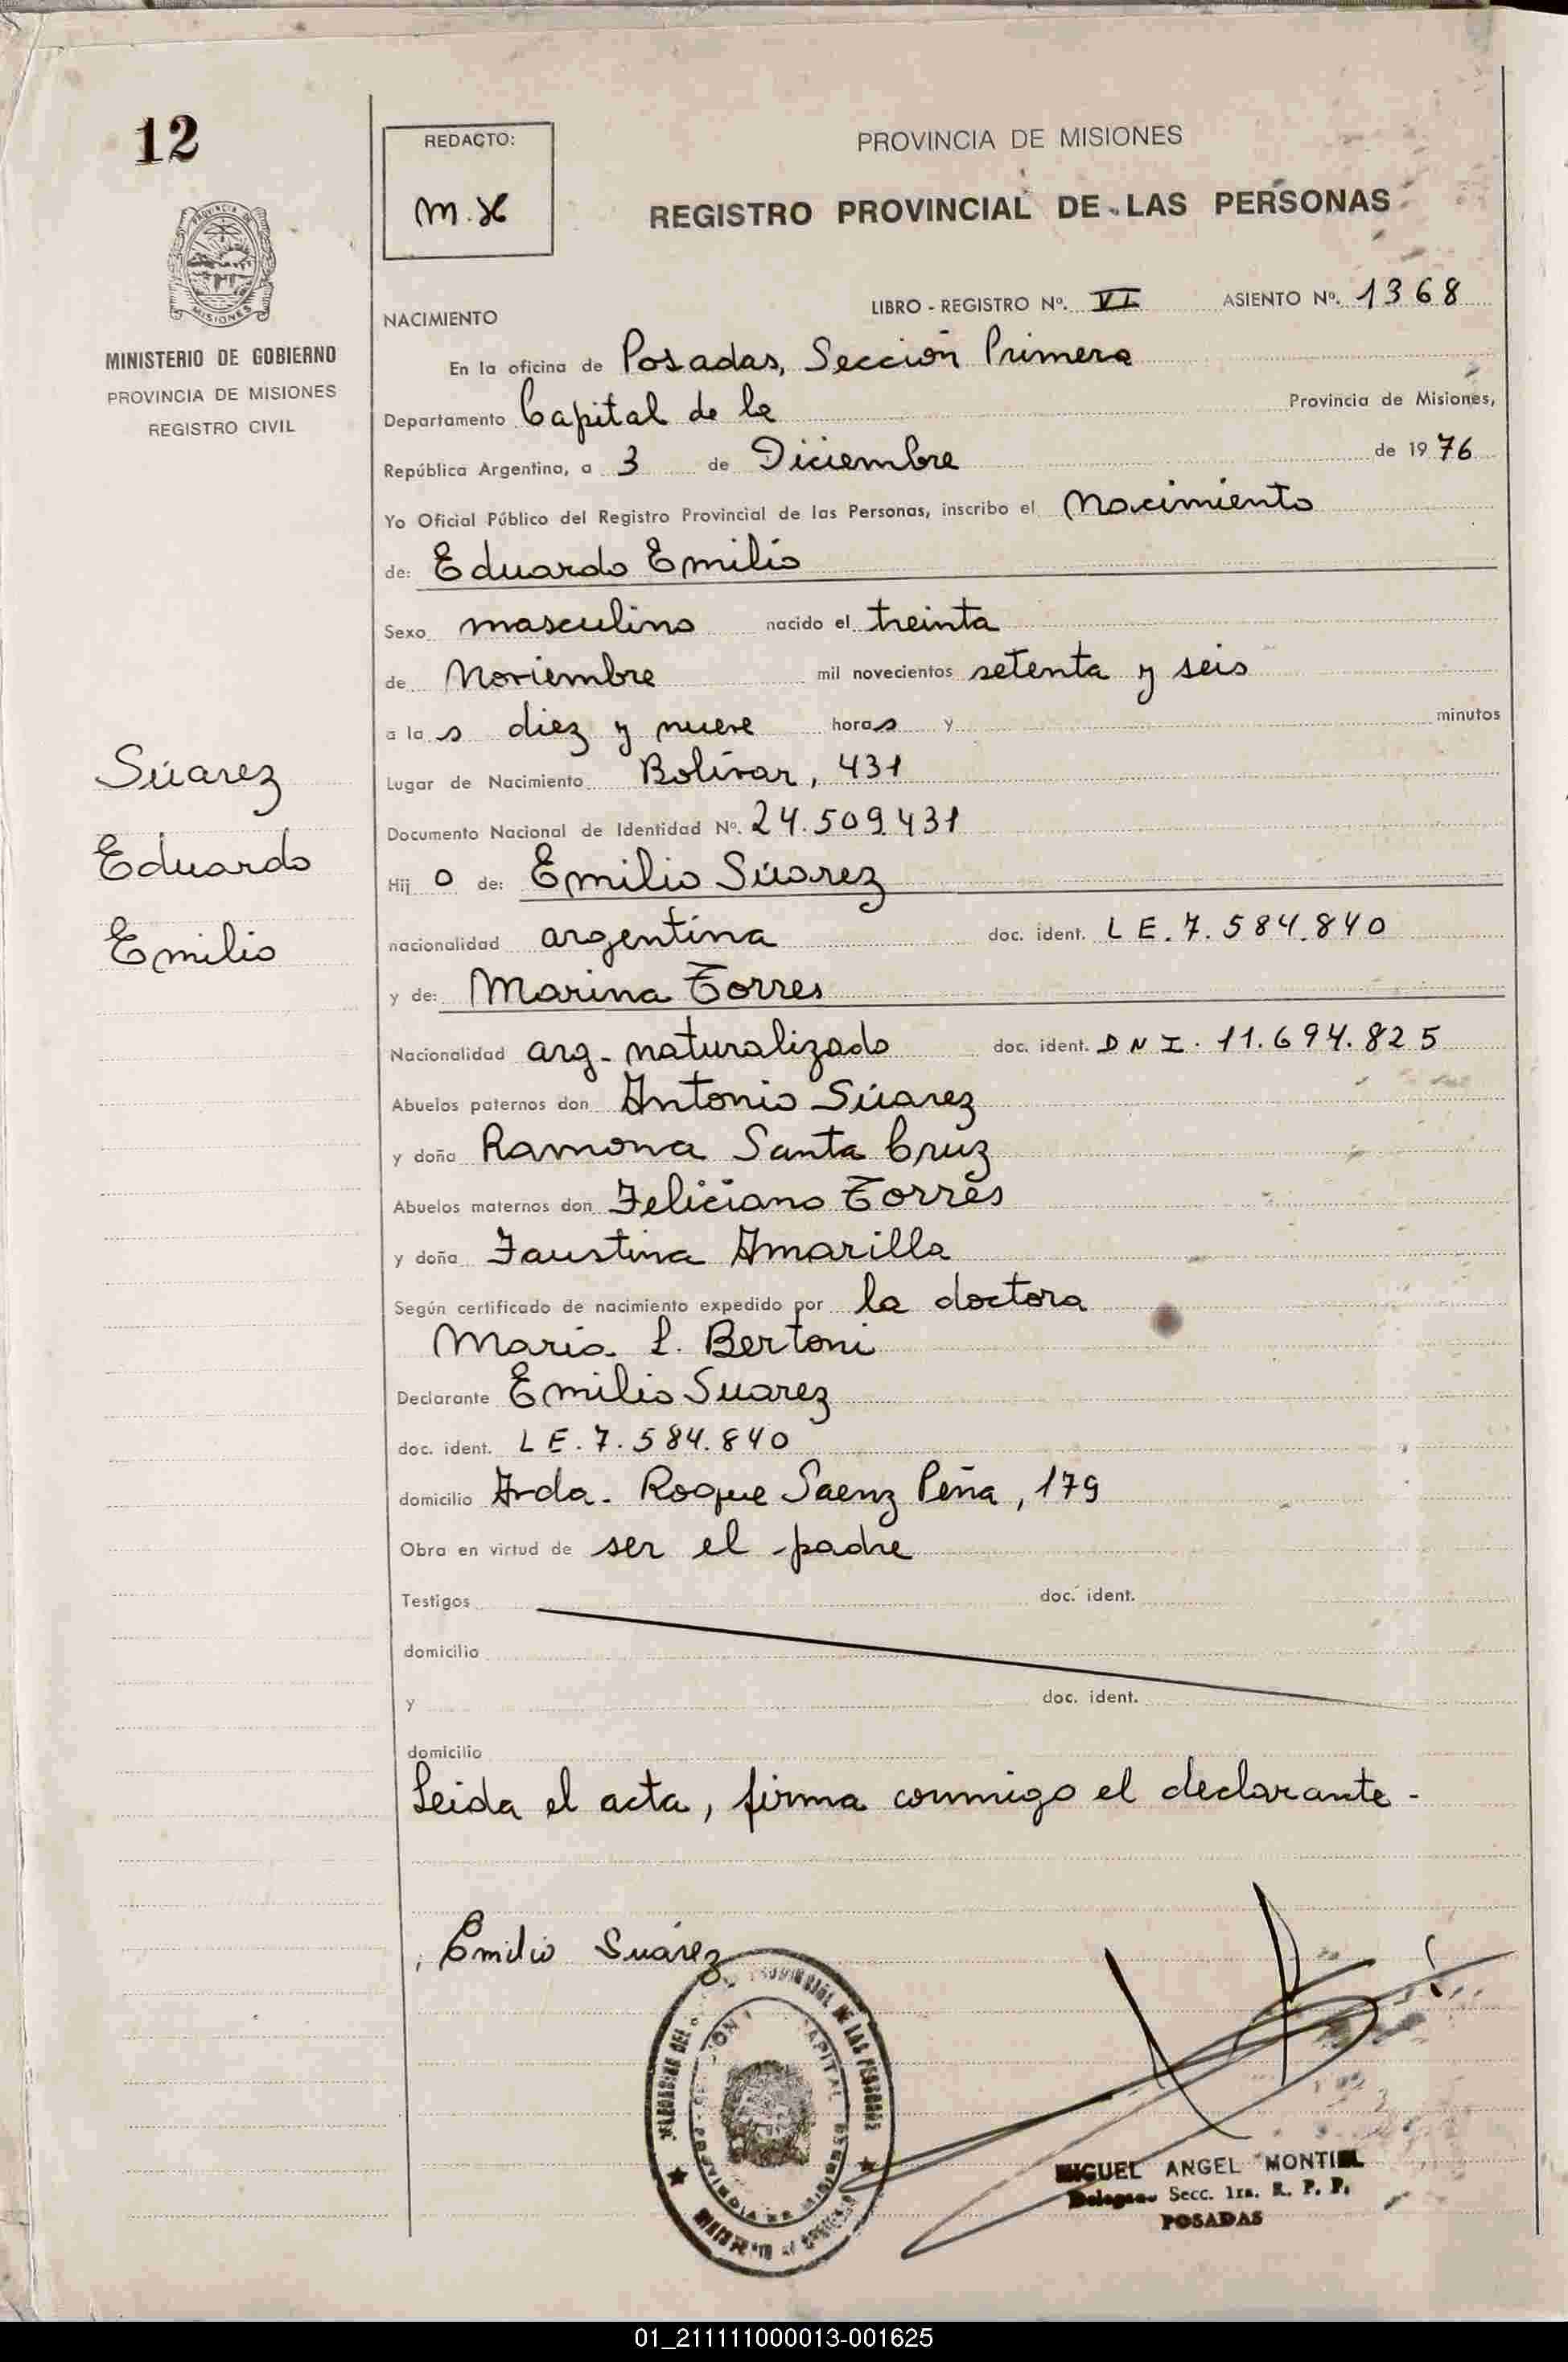 12
REDACTO:
M.H
PROVINCIA DE MISIONES
REGISTRO PROVINCIAL DE LAS PERSONAS
MISIONES
MINISTERIO DE GOBIERNO
PROVINCIA DE MISIONES
REGISTRO CIVIL
NACIMIENTO LIBRO - REGISTRO Nº. VI ASIENTO Nº. 1368
En la oficina de Posadas, Sección Primera
Departamento Capital de la Provincia de Misiones,
República Argentina, a 3 de Diciembre de 1976
Yo Oficial Público del Registro Provincial de las Personas, inscribo el Nacimiento
de: Eduardo Emilio
Sexo masculino nacido el treinta
de Noviembre mil novecientos setenta y seis
a la s diez y nueve horas y minutos
Lugar de Nacimiento Bolívar, 431
Documento Nacional de Identidad Nº. 24.509.431
Súarez
Eduardo
Emilio
Hij o de: Emilio Súarez
nacionalidad argentina doc. ident. L E. 7.584.840
y de: Marina Torres
Nacionalidad arg- naturalizado doc. ident. D N I. 11.694.825
Abuelos paternos don Antonio Súarez
y doña Ramona Santa Cruz
Abuelos maternos don Feliciano Torres
y doña Faustina Amarilla
Según certificado de nacimiento expedido por la doctora
Maria L. Bertoni
Declarante Emilio Suarez
doc. ident. L E. 7.584.840
domicilio Avda. Roque Saenz Peña, 179
Obra en virtud de ser el padre
Testigos doc. ident.
domicilio
y doc. ident.
domicilio
Leida el acta, firma conmigo el declarante -
Emilio Suárez
PROVINCIAL DE LAS PERSONAS
MIGUEL ANGEL MONTIEL
Delegado Secc. 1ra. R. P. P.
POSADAS
01_211111000013-001625